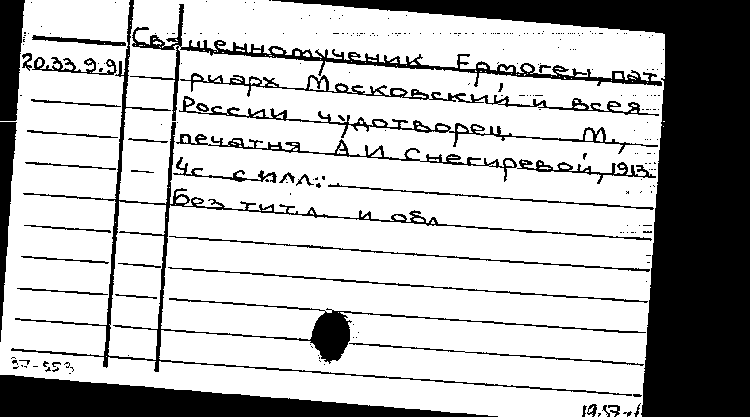 Священномученик Ермоген, пат-
20.33.9.91
риарх Московский и всея
России чудотворец. М.,
печатня А.И Снегиревой, 1913.
4с. с илл.
Без тит.л. и обл
37-553